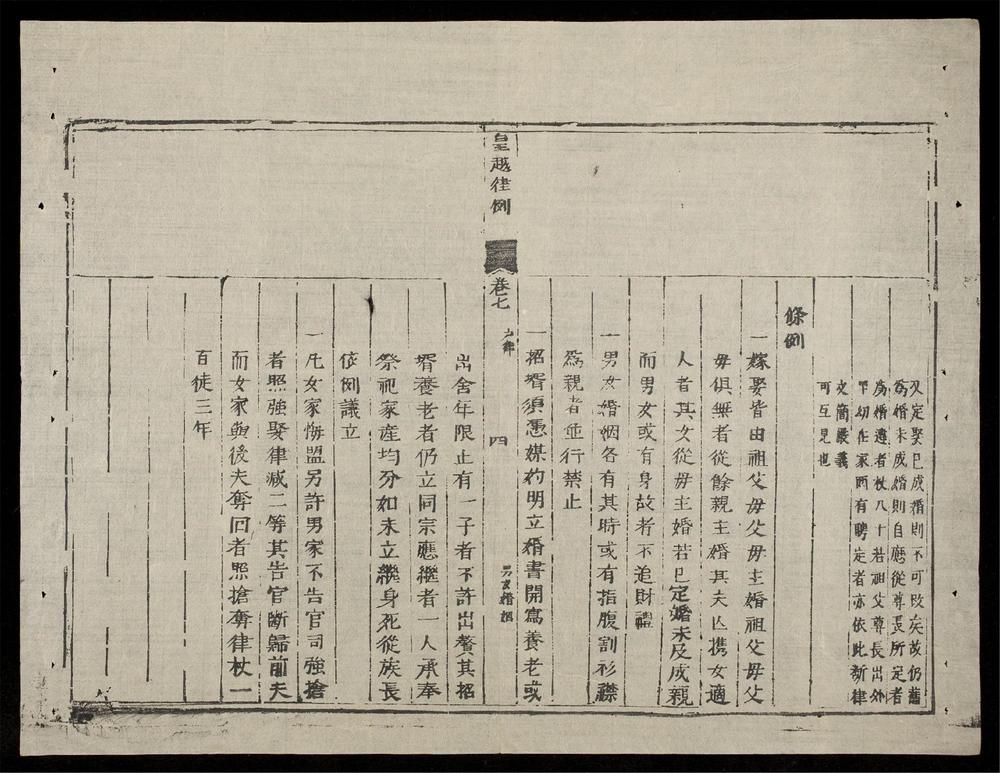 又定娶已成婚則不可改矣故仍舊
爲婚未成婚則自應從尊長所定者
爲婚違者杖八十若祖父尊長出外
卑幼在家而有聘定者亦依此斷律
文簡嚴義
可互見也
條例
一嫁娶皆由祖父母父母主婚祖父母父
母俱無者從餘親主婚其夫亡携女適
人者其女從母主婚若已定婚未及成親
而男女或有身故者不追財禮
一男女婚姻各有其時或有指腹割衫襟
爲親者並行禁止
一招壻須憑媒妁明立婚書開寫養老或
皇越律例 卷七 戶律 四 男女婚姻
出舍年限止有一子者不許出贅其招
壻養老者仍立同宗應繼者一人承奉
祭祀家產均分如未立繼身死從族長
依例議立
一凡女家悔盟另許男家不告官司強搶
者照強娶律減二等其告官斷歸前夫
而女家與後夫奪回者照搶奪律杖一
百徒三年